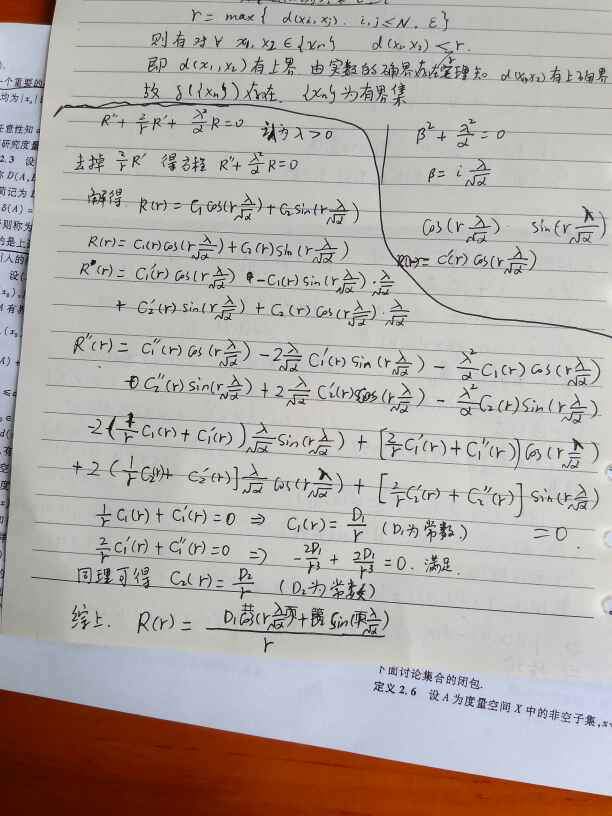 r = max{ d(xi, xj). i,j ≤ N. ε}
则有对∀ x1, x2 ∈ {xn} d(x1, x2) ≤ r.
即 d(x1, x2) 有上界. 由实数的确界存在定理知. d(x1, x2) 有上确界
故 δ({xn}) 存在. {xn} 为有界集
R'' + 2/r R' + λ²/α R = 0 λ > 0
去掉 2/r R' 得方程 R'' + λ²/α R = 0
解得 R(r) = C1 cos(r λ/√α) + C2 sin(r λ/√α)
R(r) = C1(r) cos(r λ/√α) + C2(r) sin(r λ/√α)
R'(r) = C1'(r) cos(r λ/√α) - C1(r) sin(r λ/√α) · λ/√α
+ C2'(r) sin(r λ/√α) + C2(r) cos(r λ/√α) · λ/√α
β² + λ²/α = 0
β = i λ/√α
cos(r λ/√α) · sin(r λ/√α)
R(r) = C'(r) cos(r λ/√α)
R''(r) = C1''(r) cos(r λ/√α) - 2 λ/√α C1'(r) sin(r λ/√α) - λ²/α C1(r) cos(r λ/√α)
+ C2''(r) sin(r λ/√α) + 2 λ/√α C2'(r) cos(r λ/√α) - λ²/α C2(r) sin(r λ/√α)
-2(1/r C1(r) + C1'(r)) λ/√α sin(r λ/√α) + [2/r C1'(r) + C1''(r)] cos(r λ/√α)
+ 2(1/r C2(r) + C2'(r)] λ/√α cos(r λ/√α) + [2/r C2'(r) + C2''(r)] sin(r λ/√α)
= 0.
1/r C1(r) + C1'(r) = 0 ⇒ C1(r) = D1/r (D1为常数.)
2/r C1'(r) + C1''(r) = 0 ⇒ -2D1/r³ + 2D1/r³ = 0. 满足.
同理可得 C2(r) = D2/r (D2为常数)
综上. R(r) = D1 cos(r λ/√α) + sin( λ/√α) / r
下面讨论集合的闭包.
定义 2.6 设 A 为度量空间 X 中的非空子集,